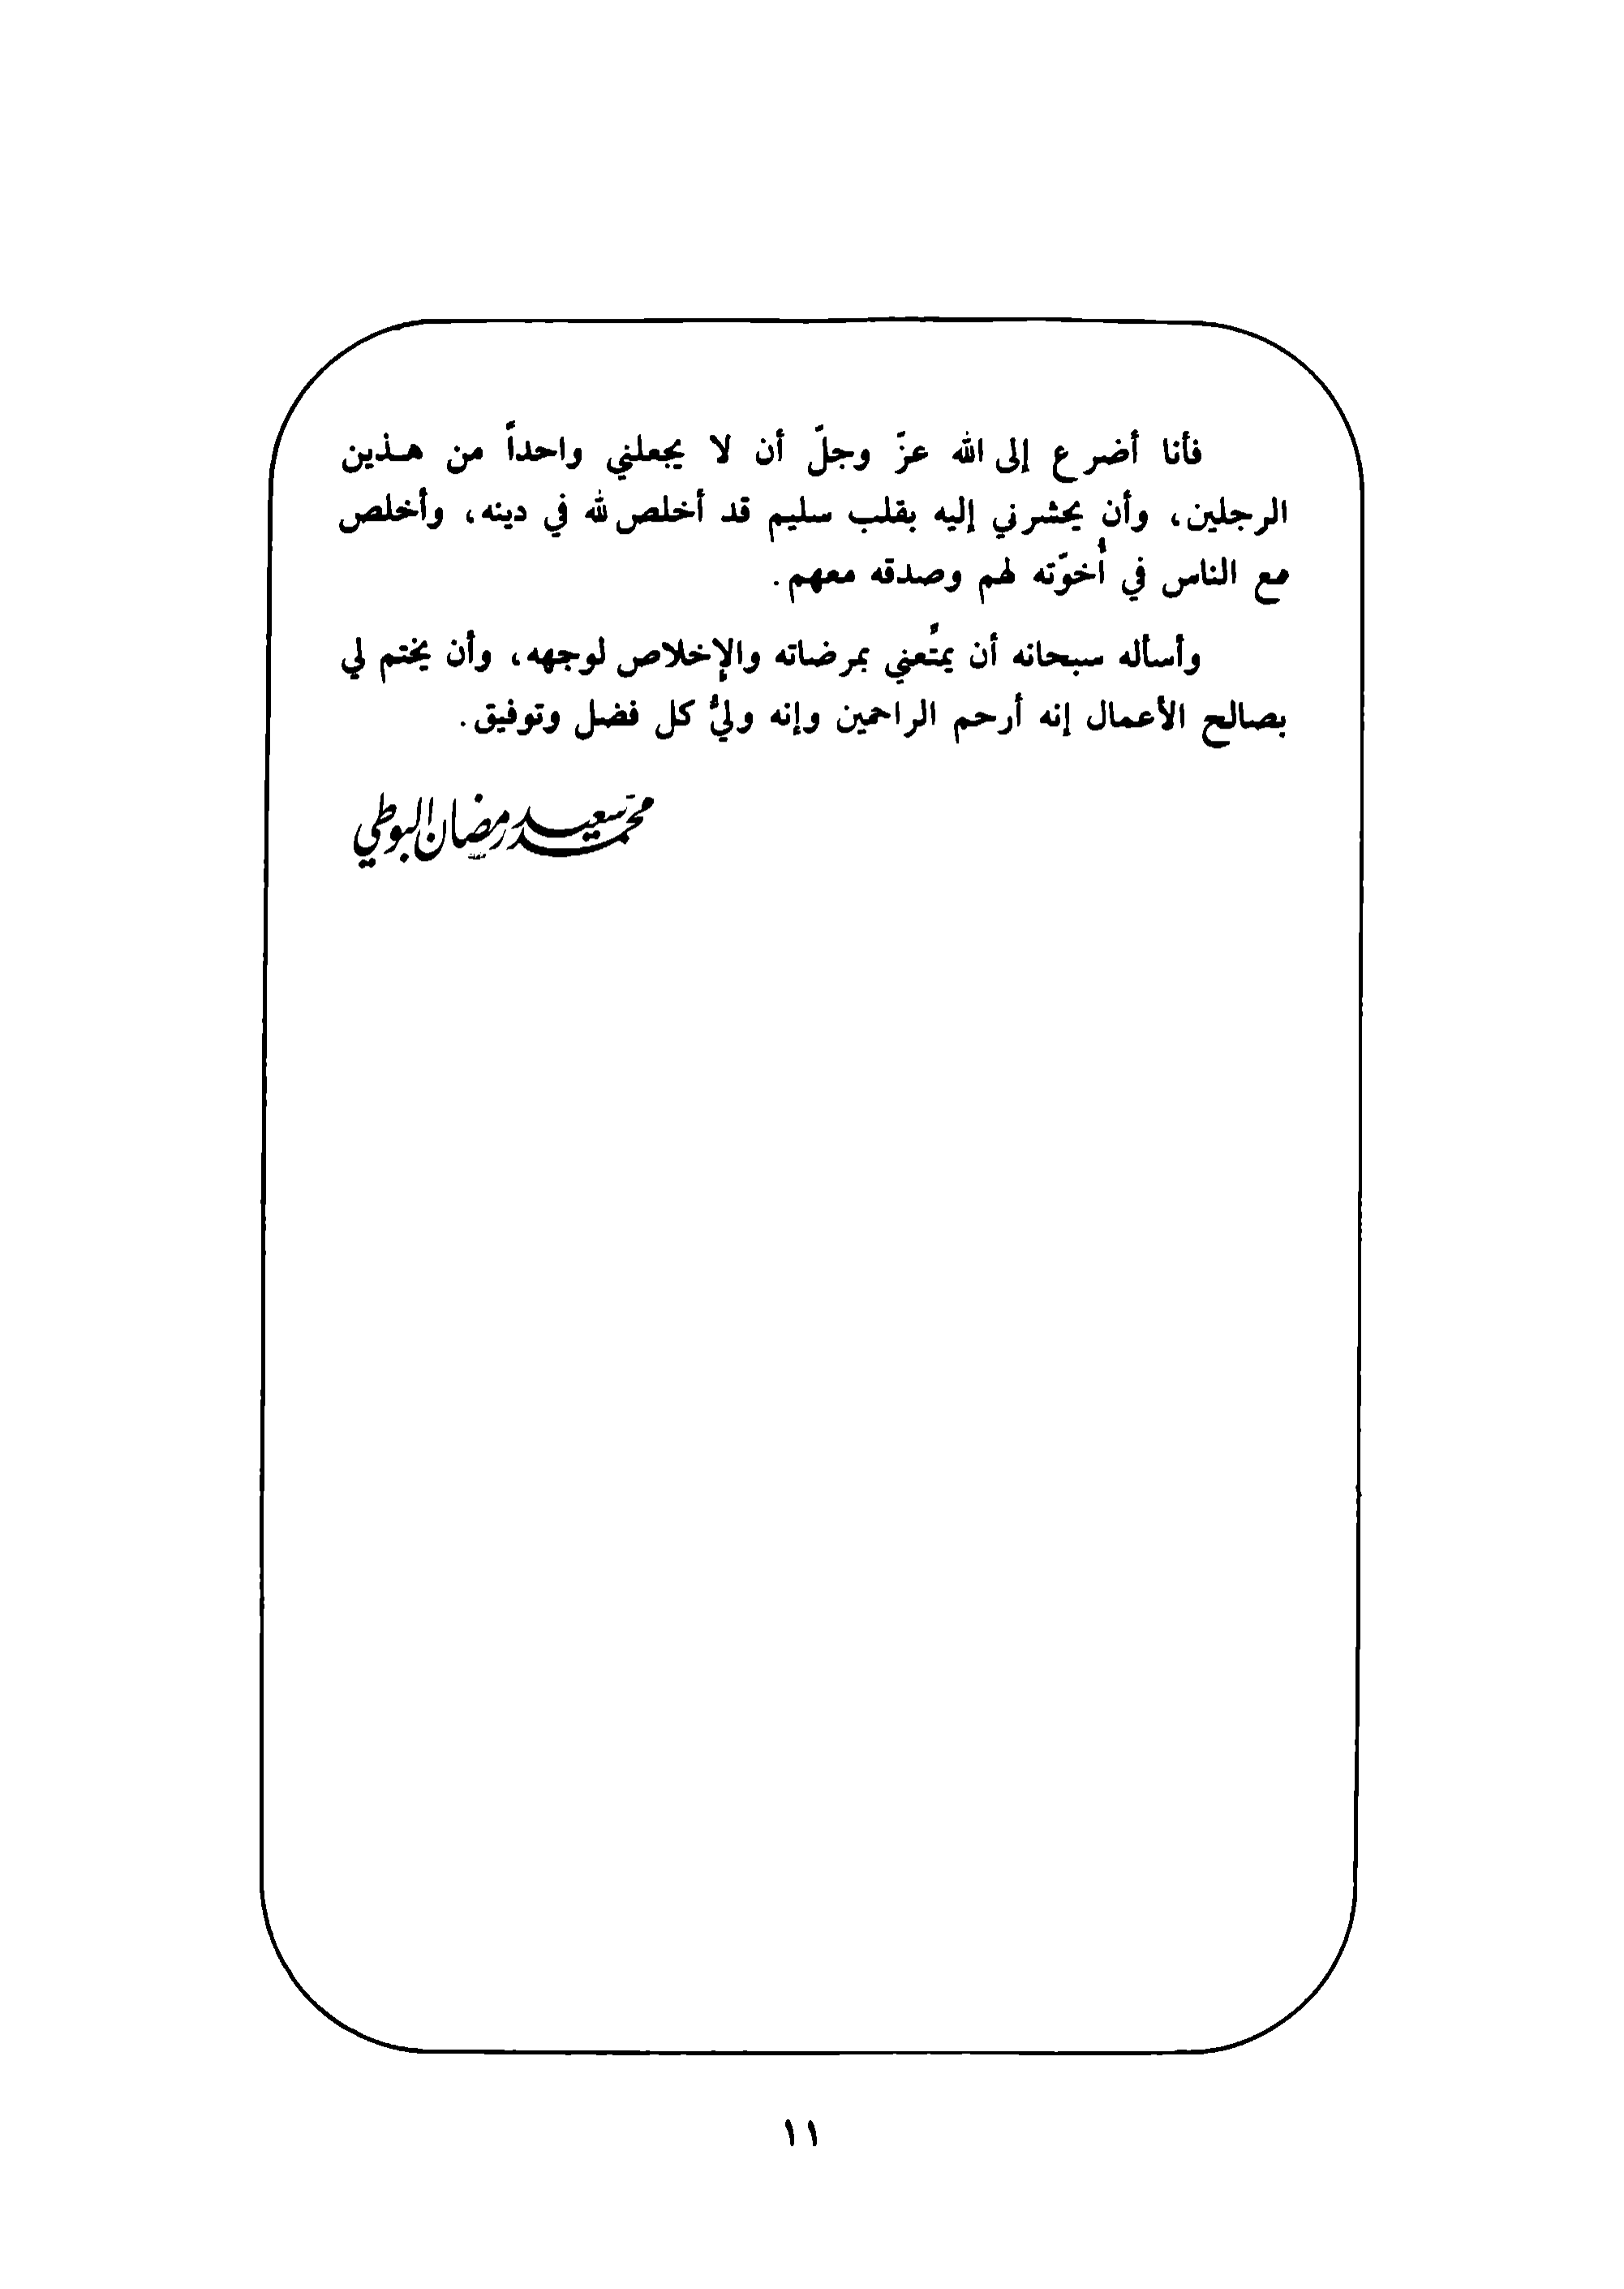 فأنا أضرع إلى الله عزّ وجلّ أن لا يجعلني واحداً من هـذين
الرجلين، وأن يحشرني إليه بقلب سليم قد أخلص لله في دينه، وأخلص
مع الناس في أُخوّته لهم وصدقه معهم.
وأسأله سبحانه أن يمتّعني بمرضاته والإخلاص لوجهه، وأن يختم لي
بصالح الأعمال إنه أرحم الراحمين وإنه وليُّ كل فضل وتوفيق.
محمد سعيد رمضان البوطي
١١